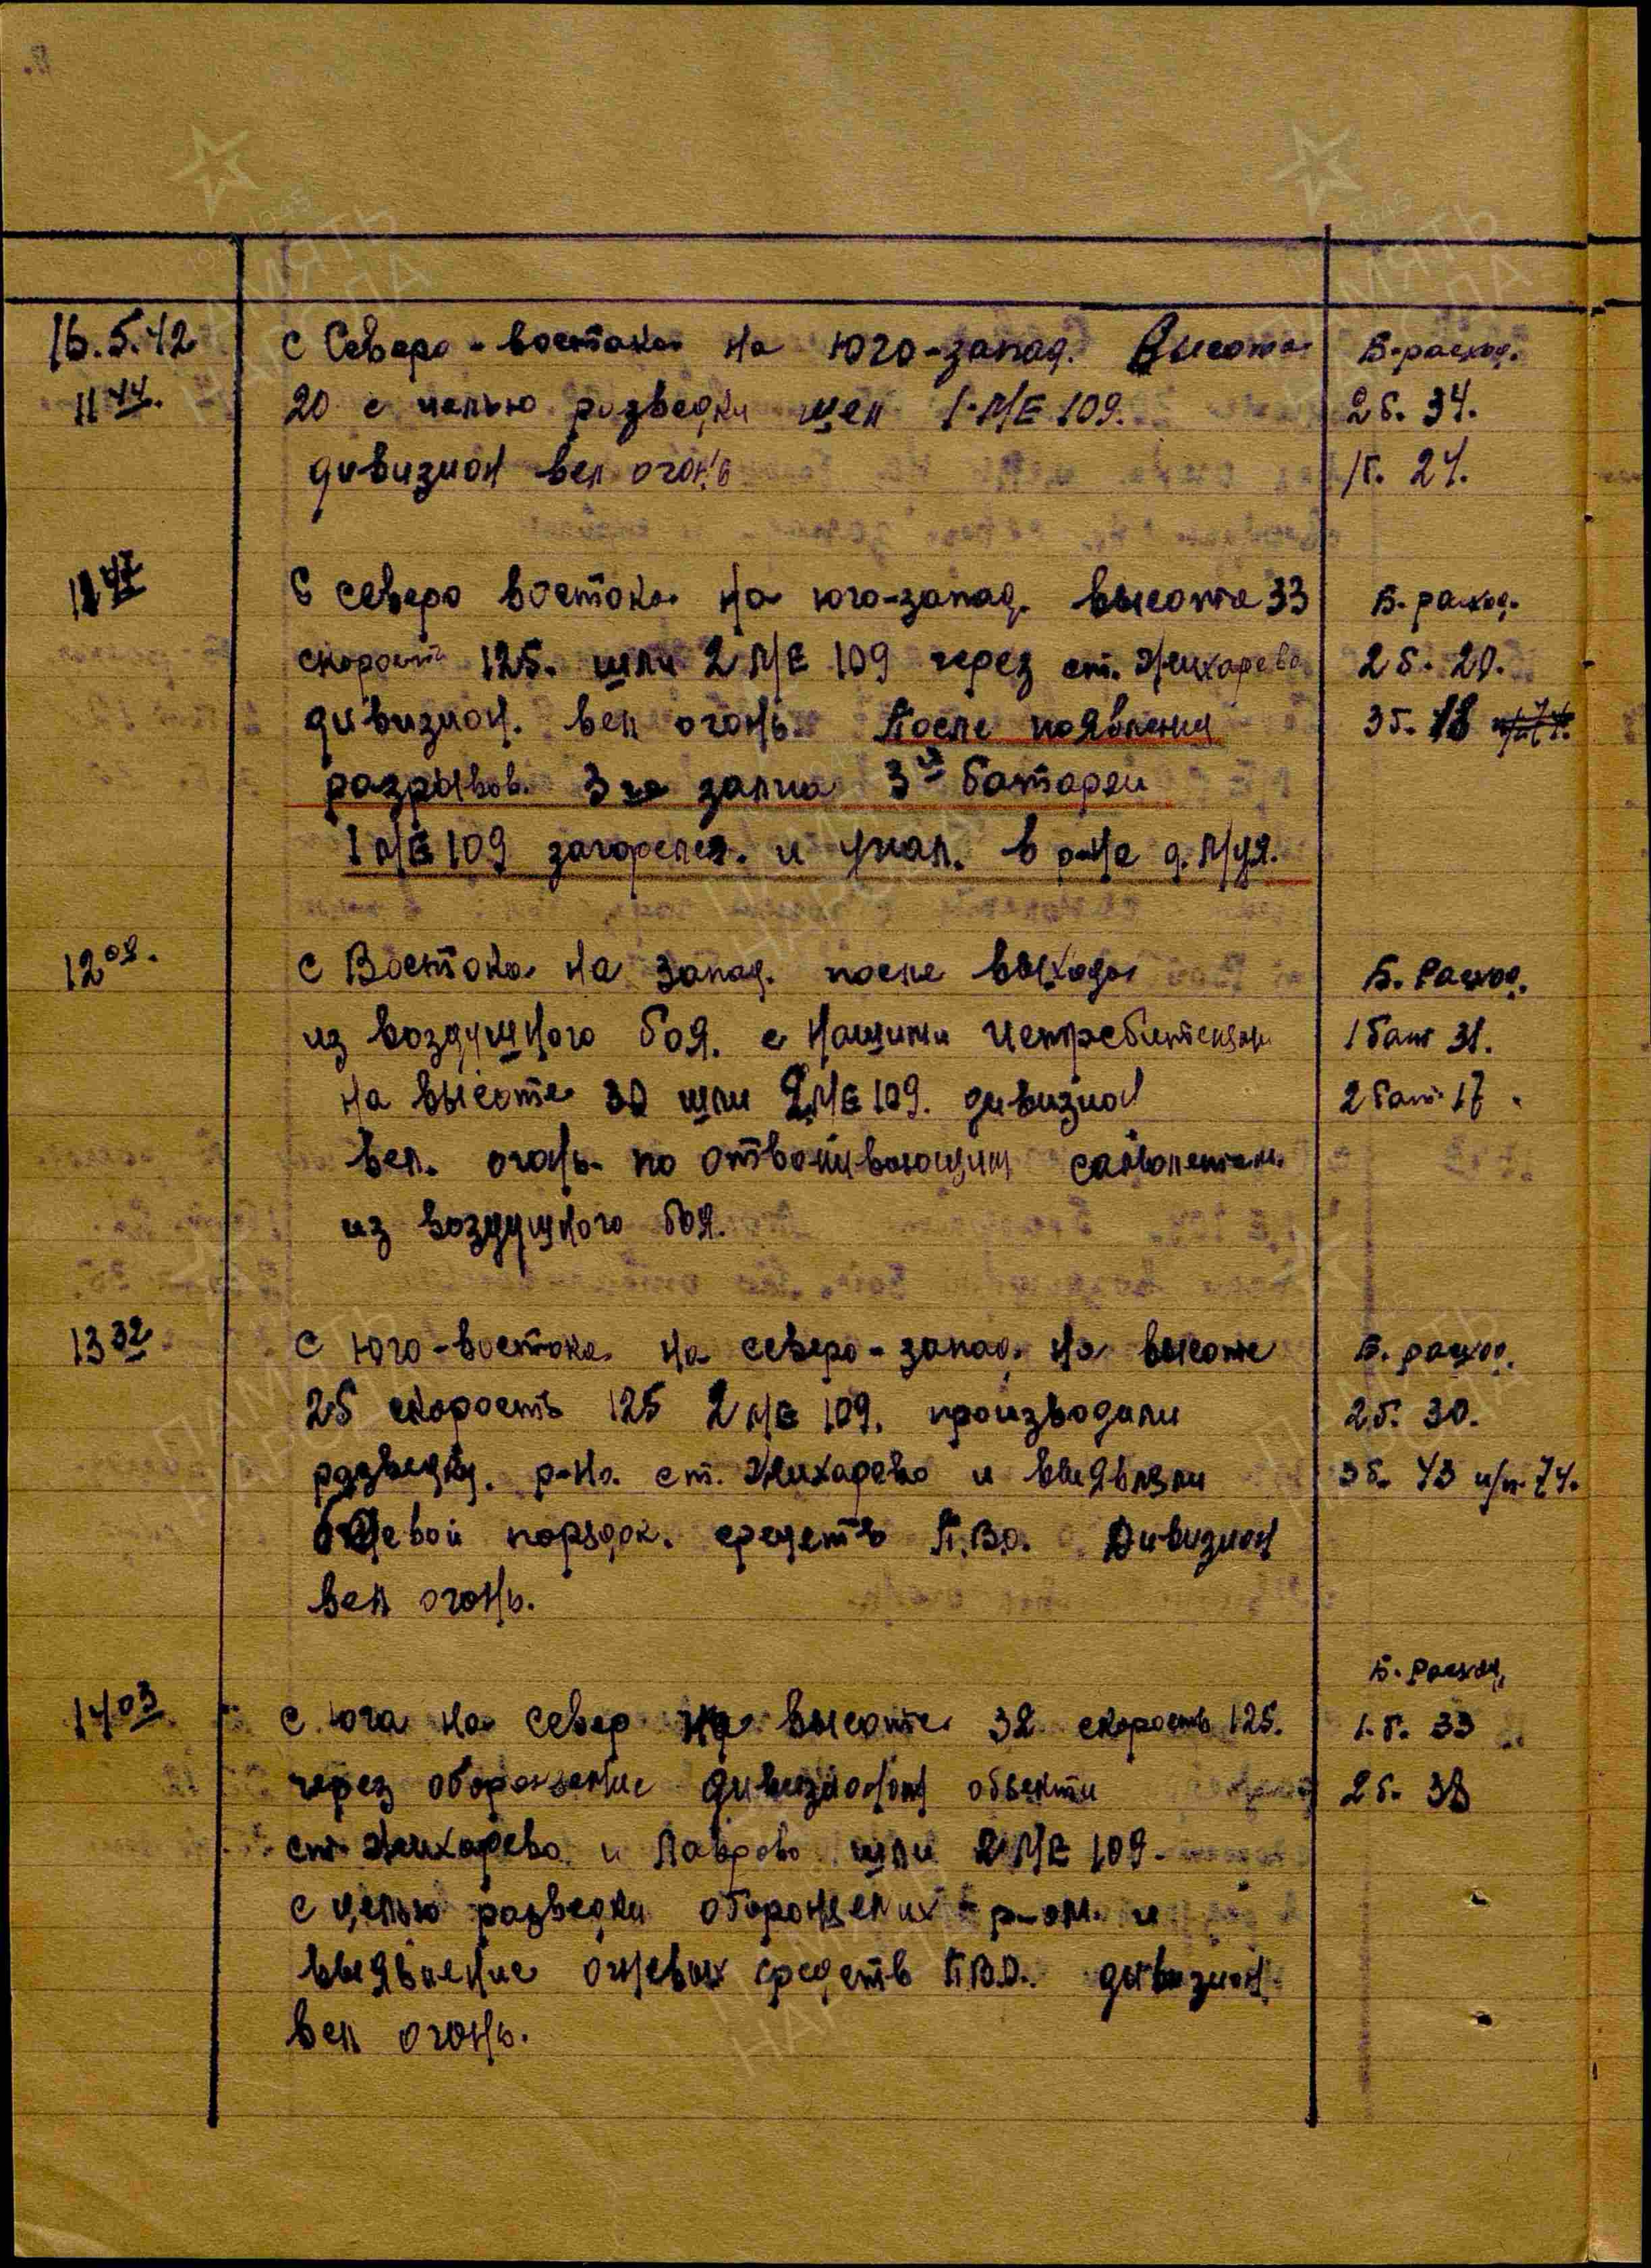 16.5.42
11 44.
с Северо-востока на юго-запад. Высота
20 с целью разведки шел 1-МЕ 109.
дивизион вел огонь
Б-расход.
2б. 34.
1б. 24.
11 47
С северо востока на юго-запад. высота 33
скорость 125. шли 2 МЕ 109 через ст. Жихарево
дивизион. вел огонь. После появления
разрывов. 3го залпа 3й батареи
1 МЕ 109 загорелся. и упал. в р-не д. Муя.
Б. расход.
2б. 20.
3б. 18
12 08.
с Востока на запад. после выхода
из воздушного боя. с нашими истребителями
на высоте 30 шли 2 МЕ 109. дивизион
вел. огонь. по отваливающим самолетам.
из воздушного боя.
Б. Расход.
1 бат 31.
2 бат. 17.
13 32
с юго-востока на северо-запад. на высоте
25 скорость 125 2 МЕ 109. производили
разведку. р-на. ст. Жихарево и выявляли
боевой порядок. средств П.В.О. Дивизион
вел огонь.
Б. расход.
2б. 30.
3б. 43 н/р. 74.
14 03
с юга на север на высоте 32 скорость 125.
через обороняемые дивизионом объекты
ст. Жихарево и Лаврово шли 2 МЕ 109.
с целью разведки обороняемых р-он. и
выявление огневых средств П.В.О. дивизион
вел огонь.
Б. Расход,
1.б. 33
2б. 38
ПАМЯТЬ
НАРОДА